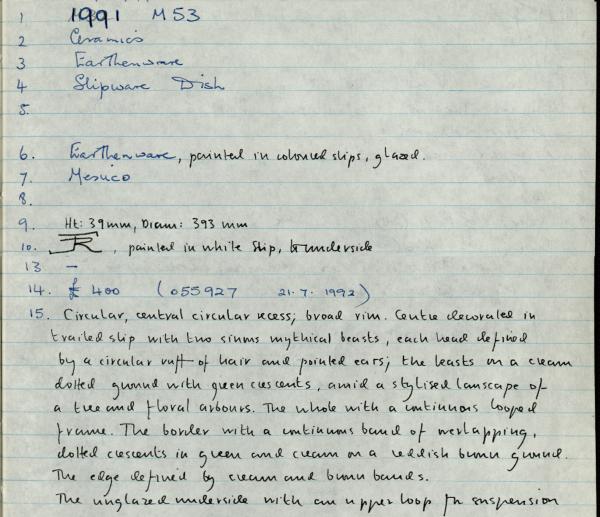 1 1991 M53
2 Ceramics
3 Earthenware
4 Slipware Dish
5.
6. Earthenware, painted in coloured slips, glazed.
7. Mexico
8.
9. Ht: 39mm, Diam: 393 mm
10. JR, painted in white slip, to underside
13 —
14. £ 400 (055927 21.7.1992)
15. Circular, central circular recess; broad rim. Centre decorated in
trailed slip with two sinuous mythical beasts, each head defined
by a circular ruff of hair and pointed ears; the beasts on a cream
dotted ground with green crescents, amid a stylised lanscape of
a tree and floral arbours. The whole with a continuous looped
frame. The border with a continuous band of overlapping,
dotted crescents in green and cream on a reddish brown ground.
The edge defined by cream and brown bands.
The unglazed underside with an upper loop for suspension